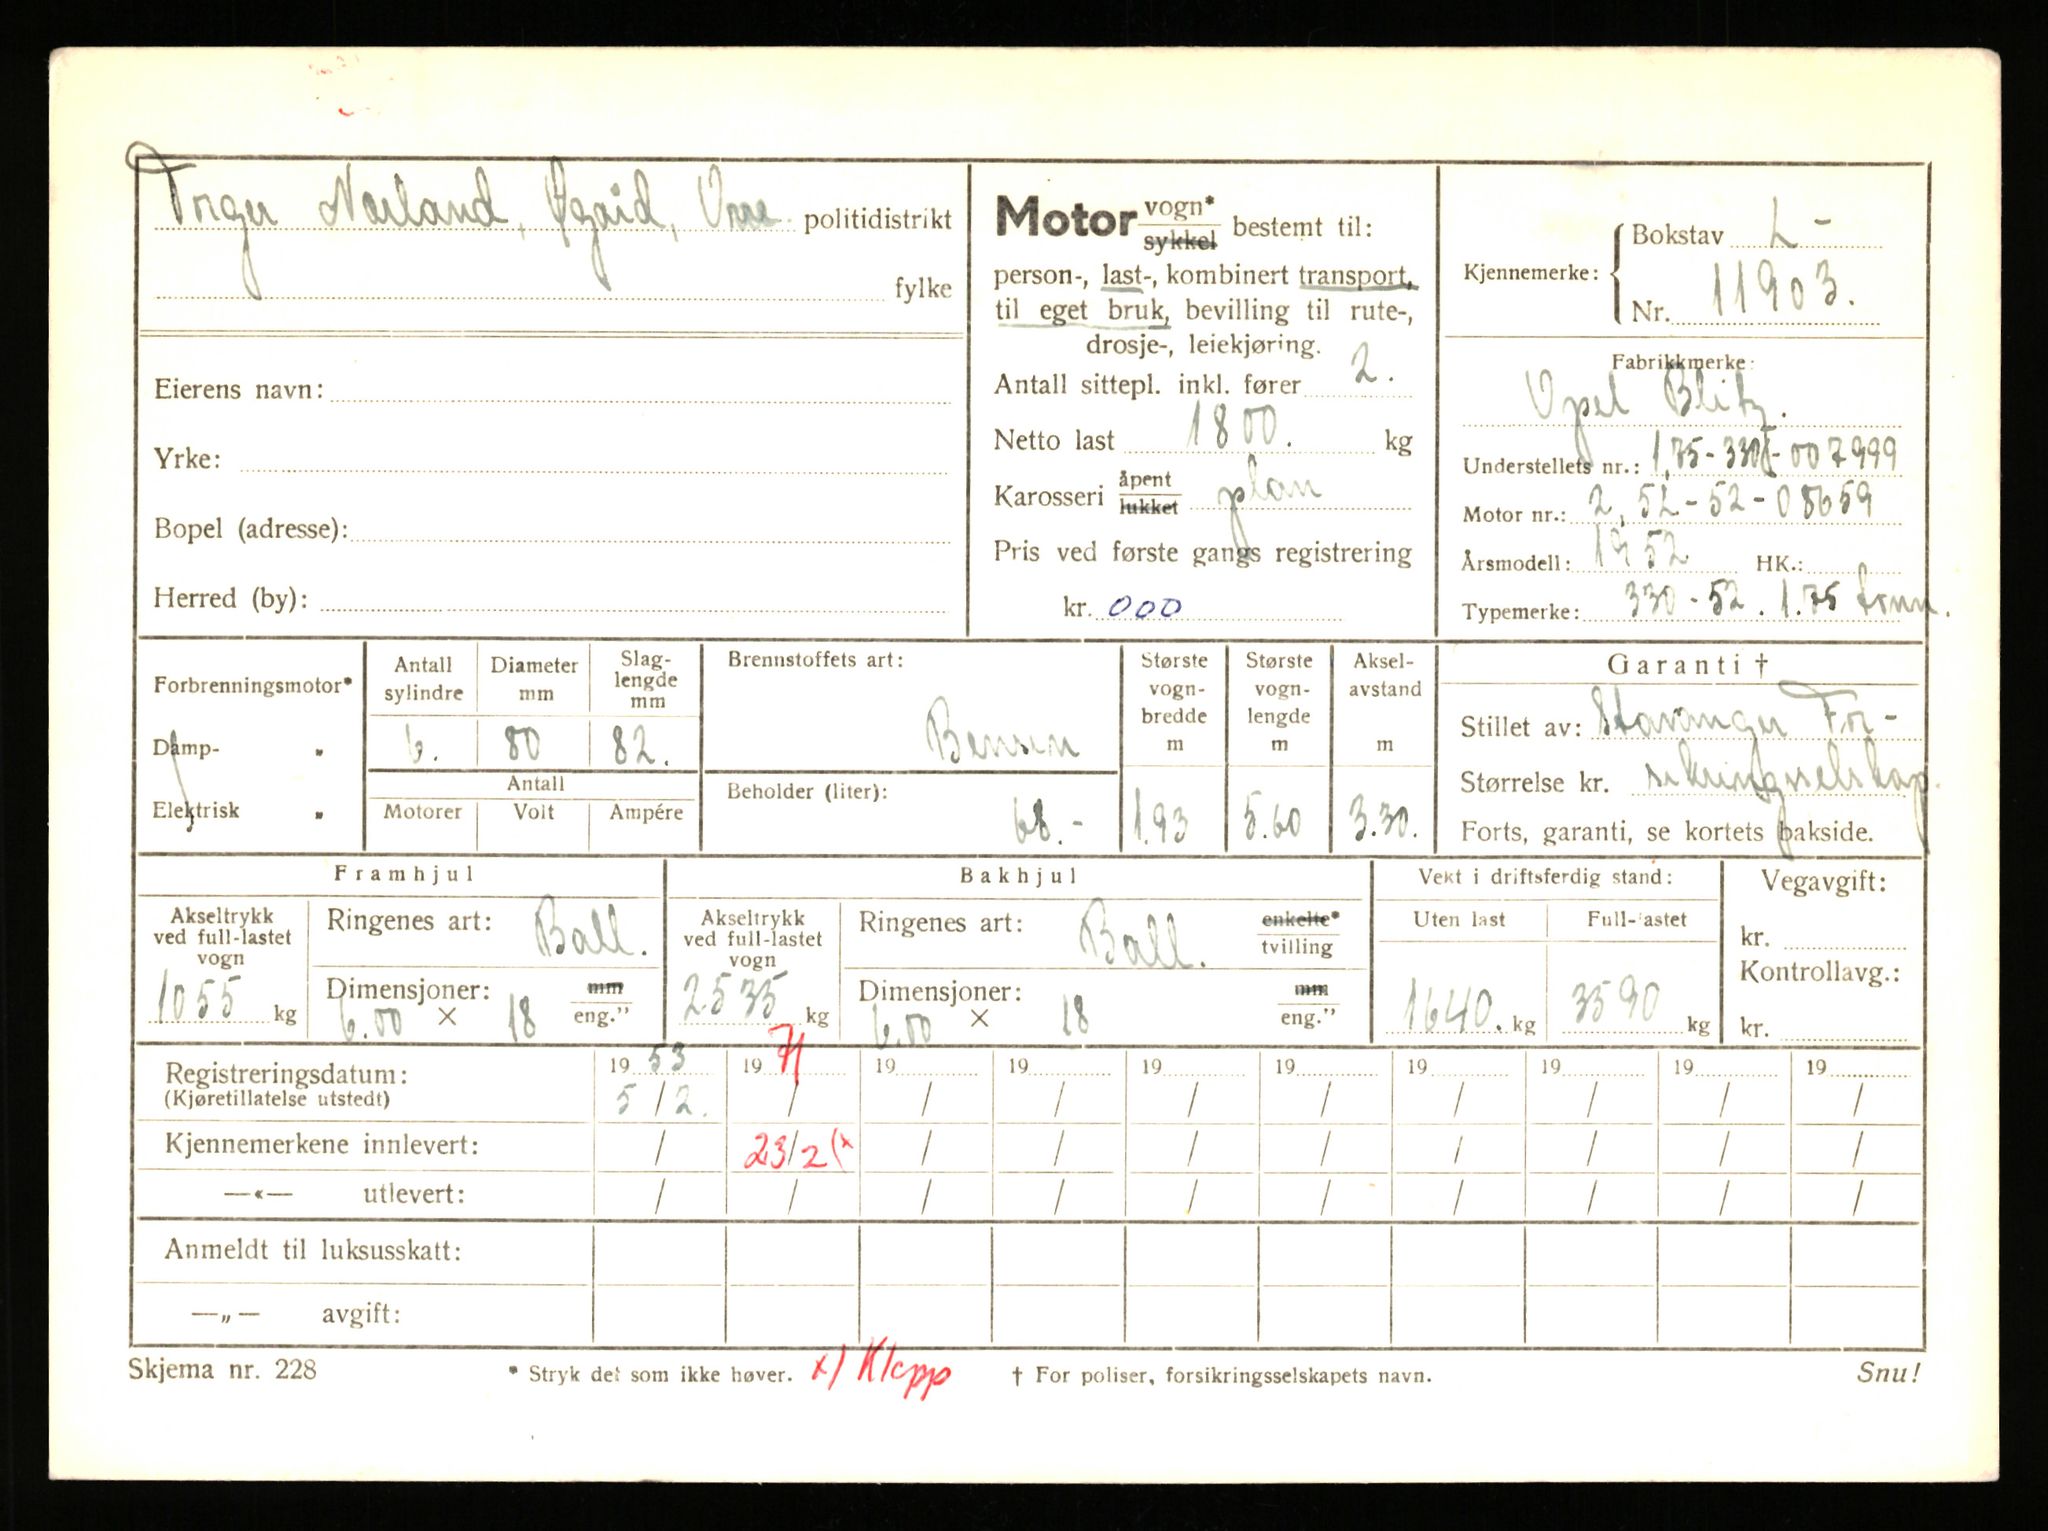 Torger Nærland, Øgård, Orre politidistrikt
fylke
Eierens navn:
Yrke:
Bopel (adresse):
Herred (by):
Motor vogn* sykkel bestemt til:
person-, last-, kombinert transport,
til eget bruk, bevilling til rute-,
drosje-, leiekjøring.
Antall sittepl. inkl. fører 2.
Netto last 1800. kg
Karosseri åpent lukket plan
Pris ved første gangs registrering
kr. 000
Kjennemerke: Bokstav L-
Nr. 11903.
Fabrikkmerke:
Opel Blitz.
Understellets nr.: 1,75-330L-007999
Motor nr.: 2,52-52-08659
Årsmodell: 1952 HK.:
Typemerke: 330-52. 1.75 tonn.
Forbrenningsmotor*
Damp- „
Elektrisk „
Antall sylindre
6.
Diameter mm
80
Slag-lengde mm
82.
Antall
Motorer Volt Ampére
Brennstoffets art:
Bensin
Beholder (liter):
68.-
Største vogn-bredde m
1.93
Største vogn-lengde m
5.60
Aksel-avstand m
3.30.
Garanti †
Stillet av: Stavanger For-
Størrelse kr. sikringsselskap.
Forts, garanti, se kortets bakside.
Framhjul
Akseltrykk ved full-lastet vogn
1055 kg
Ringenes art: Ball.
Dimensjoner: 6.00 × 18 mm eng."
Bakhjul
Akseltrykk ved full-lastet vogn
2535 kg
Ringenes art: Ball. enkelte* tvilling
Dimensjoner: 6.00 × 18 mm eng."
Vekt i driftsferdig stand:
Uten last Full-lastet
1640. kg 3590 kg
Vegavgift:
kr.
Kontrollavg.:
kr.
Registreringsdatum: 1953 1971 19 19 19 19 19 19 19 19
(Kjøretillatelse utstedt) 5/2. / / / / / / / / /
Kjennemerkene innlevert: / 23/2 (x / / / / / / / /
—«— utlevert: / / / / / / / / / /
Anmeldt til luksusskatt:
—„— avgift:
Skjema nr. 228 * Stryk det som ikke høver. x) Klepp † For poliser, forsikringsselskapets navn. Snu!